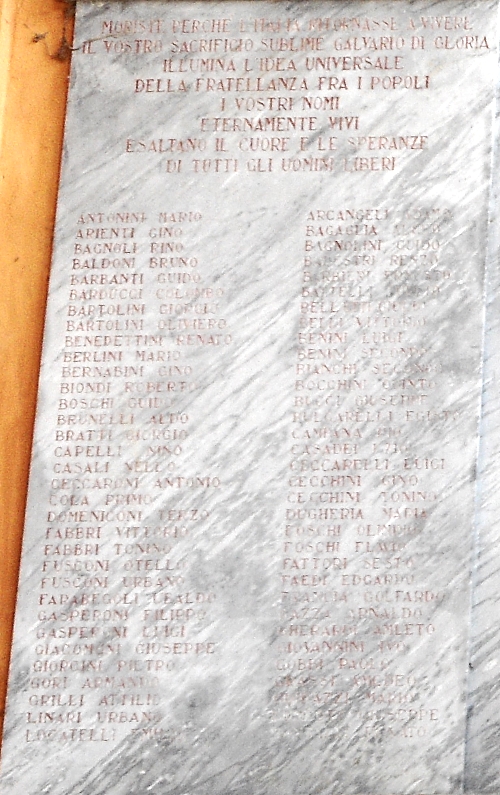 MORISTE PERCHÈ L'ITALIA RITORNASSE A VIVERE
IL VOSTRO SACRIFICIO SUBLIME CALVARIO DI GLORIA
ILLUMINA L'IDEA UNIVERSALE
DELLA FRATELLANZA FRA I POPOLI
I VOSTRI NOMI
ETERNAMENTE VIVI
ESALTANO IL CUORE E LE SPERANZE
DI TUTTI GLI UOMINI LIBERI
ANTONINI MARIO
ARIENTI GINO
BAGNOLI RINO
BALDONI BRUNO
BARBANTI GUIDO
BARDUCCI COLOMBO
BARTOLINI GIORGIO
BARTOLINI OLIVIERO
BENEDETTINI RENATO
BERLINI MARIO
BERNABINI GINO
BIONDI ROBERTO
BOSCHI GUIDO
BRUNELLI ALDO
BRATTI GIORGIO
CAPELLI NINO
CASALI NELLO
CECCARONI ANTONIO
COLA PRIMO
DOMENICONI TERZO
FABBRI VITTORIO
FABBRI TONINO
FUSCONI OTELLO
FUSCONI URBANO
FARABEGOLI UBALDO
GASPERONI FILIPPO
GASPERONI LUIGI
GIACOMONI GIUSEPPE
GIORGINI PIETRO
GORI ARMANDO
GRILLI ATTILIO
LINARI URBANO
LOCATELLI
ARCANGELI
BAGAGLIA
BAGNOLINI GUIDO
RENZO
BARBIERI
BATTELLI
BELLI VITTORIO
BENINI LUIGI
BENINI SECONDO
BIANCHI SECONDO
BOCCHINI QUINTO
BUCCI GIUSEPPE
BULGARELLI EGISTO
CAMPANA
CASADEI
CECCARELLI ELIGI
CECCHINI GINO
CECCHINI TONINO
DUGHERIA MAFIA
FOSCHI OLINDO
FOSCHI FLAVIO
FATTORI SESTO
FAEDI EDGARDO
GOLFARDO
ARNALDO
GHERARDI AMLETO
GIOVANNINI IVO
GOBBI PAOLO
MARIO
GIUSEPPE